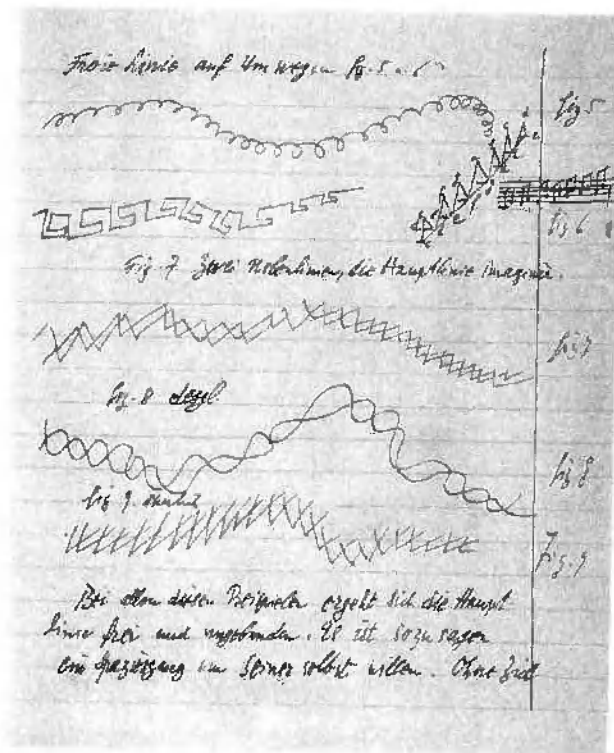 Freie Linie auf Umwegen fg. 5 u. 6
fig 5
fig. 6
Fig. 7 Zwei Nebenlinien, die Hauptlinie imaginär.
fig 7
fig. 8 desgl.
fig 8
fig 9.
fig. 9
Bei allen diesen Beispielen ergeht sich die Haupt
linie frei und ungebunden. Es ist sozusagen
ein Spaziergang um seiner selbst willen. Ohne Ziel